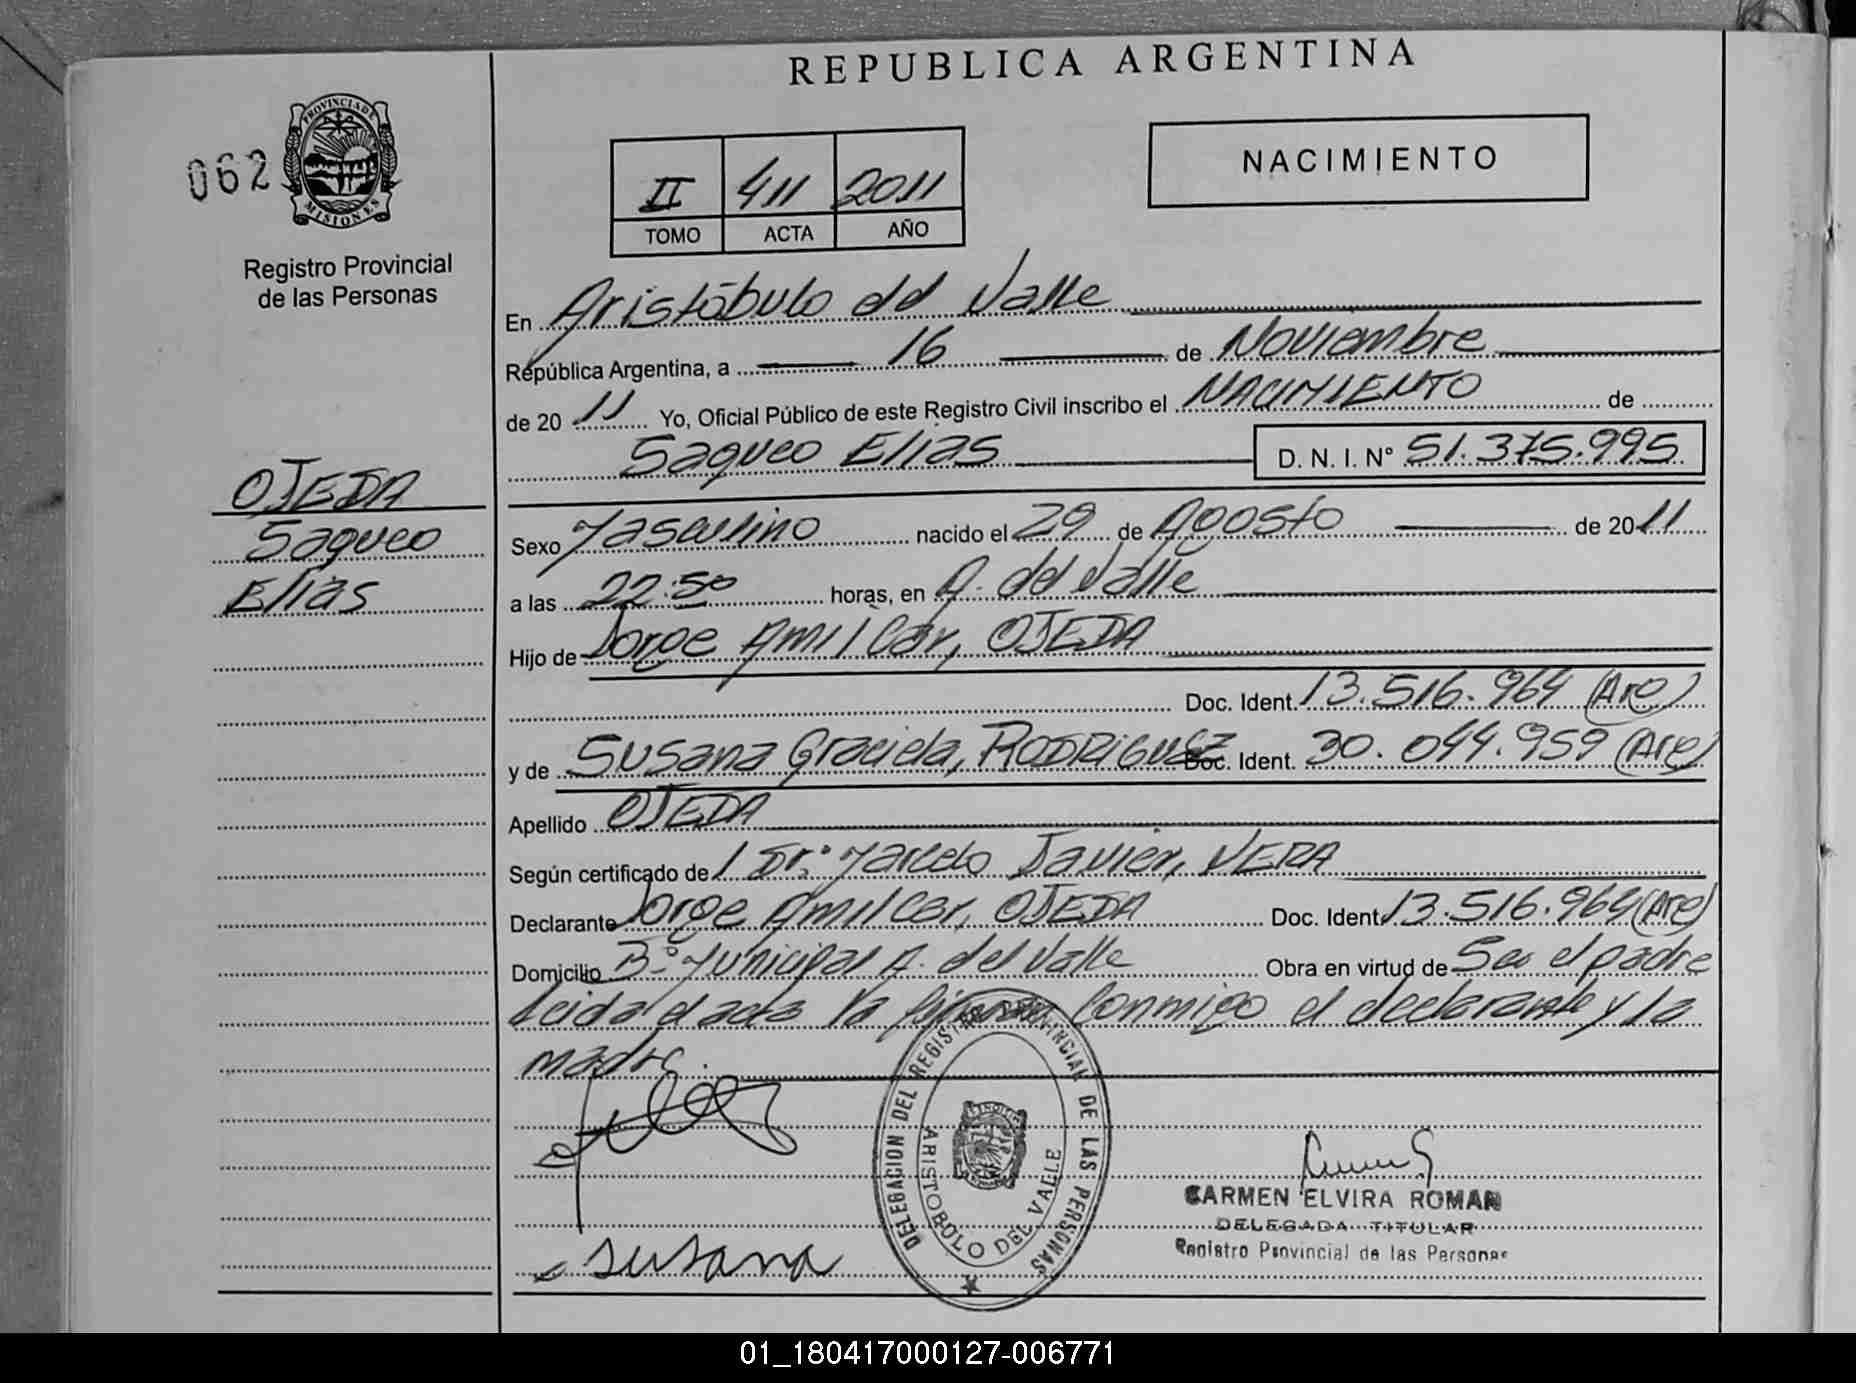 REPUBLICA ARGENTINA
062
PROVINCIA DE MISIONES
Registro Provincial
de las Personas
II 411 2011
TOMO ACTA AÑO
NACIMIENTO
En Aristóbulo del Valle
República Argentina, a 16 de Noviembre
de 2011 Yo, Oficial Público de este Registro Civil inscribo el NACIMIENTO de
Saqueo Elias D. N. I. N° 51.375.995
OJEDA
Saqueo
Elias
Sexo Masculino nacido el 29 de Agosto de 2011
a las 22:50 horas, en A. del Valle
Hijo de Jorge Amilcar, OJEDA
Doc. Ident. 13.516.964 (Arg)
y de Susana Graciela, RODRIGUEZ Doc. Ident. 30.044.959 (Arg)
Apellido OJEDA
Según certificado de / Dr. Marcelo Javier, VERA
Declarante Jorge Amilcar, OJEDA Doc. Ident. 13.516.964 (Arg)
Domicilio B° Municipal A. del Valle Obra en virtud de Ser el padre
Leida el acta la firman Conmigo el declarante y la
madre.
DELEGACION DEL REGISTRO PROVINCIAL DE LAS PERSONAS
ARISTOBOLO DEL VALLE
CARMEN ELVIRA ROMAN
DELEGADA TITULAR
Registro Provincial de las Personas
Susana
01_180417000127-006771